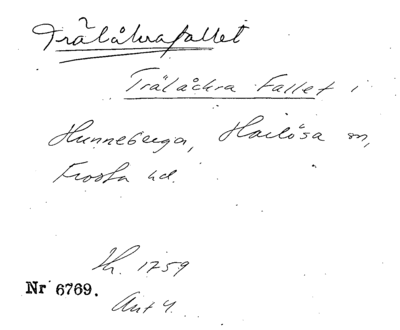 Trälåkrafallet
Trälåckra Fallet i
Hunneberga, Harlösa sn,
Frosta hd.
Kh. 1759
Nr 6769.
Ant 4.